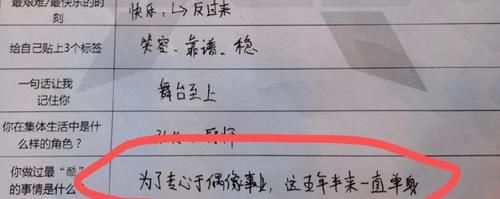 最艰难/最快乐的时
刻
快乐：↳反过来
给自己贴上3个标签
笑容、靠谱、稳
一句话让我
记住你
舞台至上
你在集体生活中是什
么样的角色？
你做过最“酷”
的事情是什么
为了专心于偶像事业，这五年半来一直单身